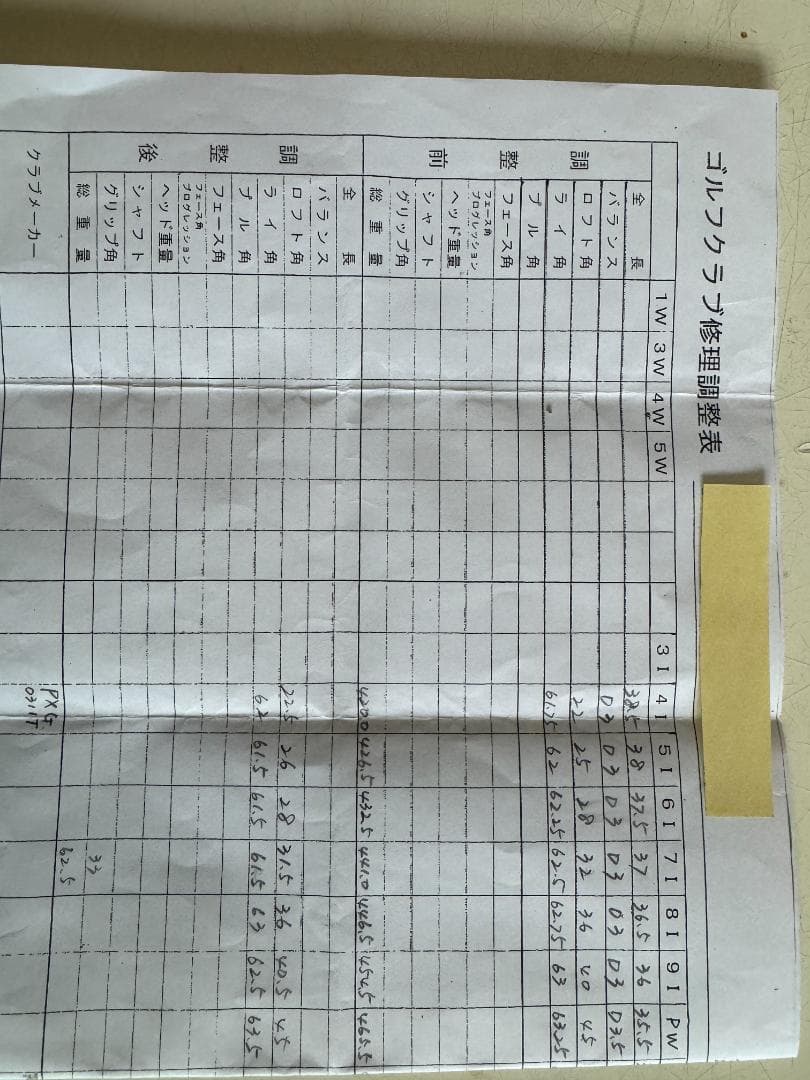 ゴルフクラブ修理調整表
1W 3W 4W 5W 3I 4I 5I 6I 7I 8I 9I PW
調整前
全長 38.5 38 37.5 37 36.5 36 35.5
バランス D3 D3 D3 D3 D3 D3 D3.5
ロフト角 22 25 28 32 36 40 45
ライ角 61.75 62 62.25 62.5 62.75 63 63.25
プル角
フェース角
フェース角プログレッション
ヘッド重量
シャフト
グリップ角
総重量 420.0 426.5 432.5 441.0 446.5 454.5 465.5
調整後
全長
バランス
ロフト角 22.5 26 28 31.5 36 40.5 45
ライ角 62 61.5 61.5 61.5 63 62.5 63.5
プル角
フェース角
フェース角プログレッション
ヘッド重量
シャフト
グリップ角
総重量 33
62.5
クラブメーカー PXG
0311T